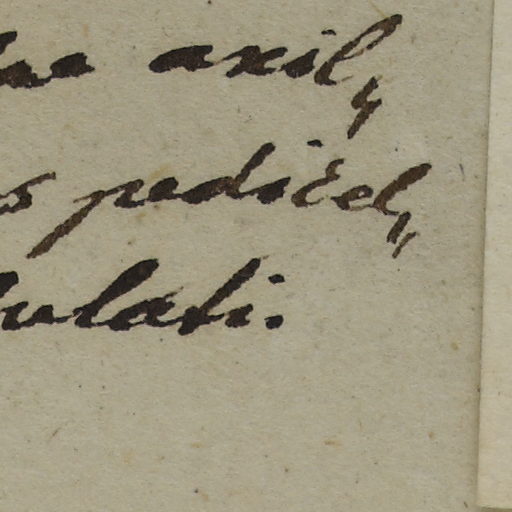 axil„
pedicel„
ulati.